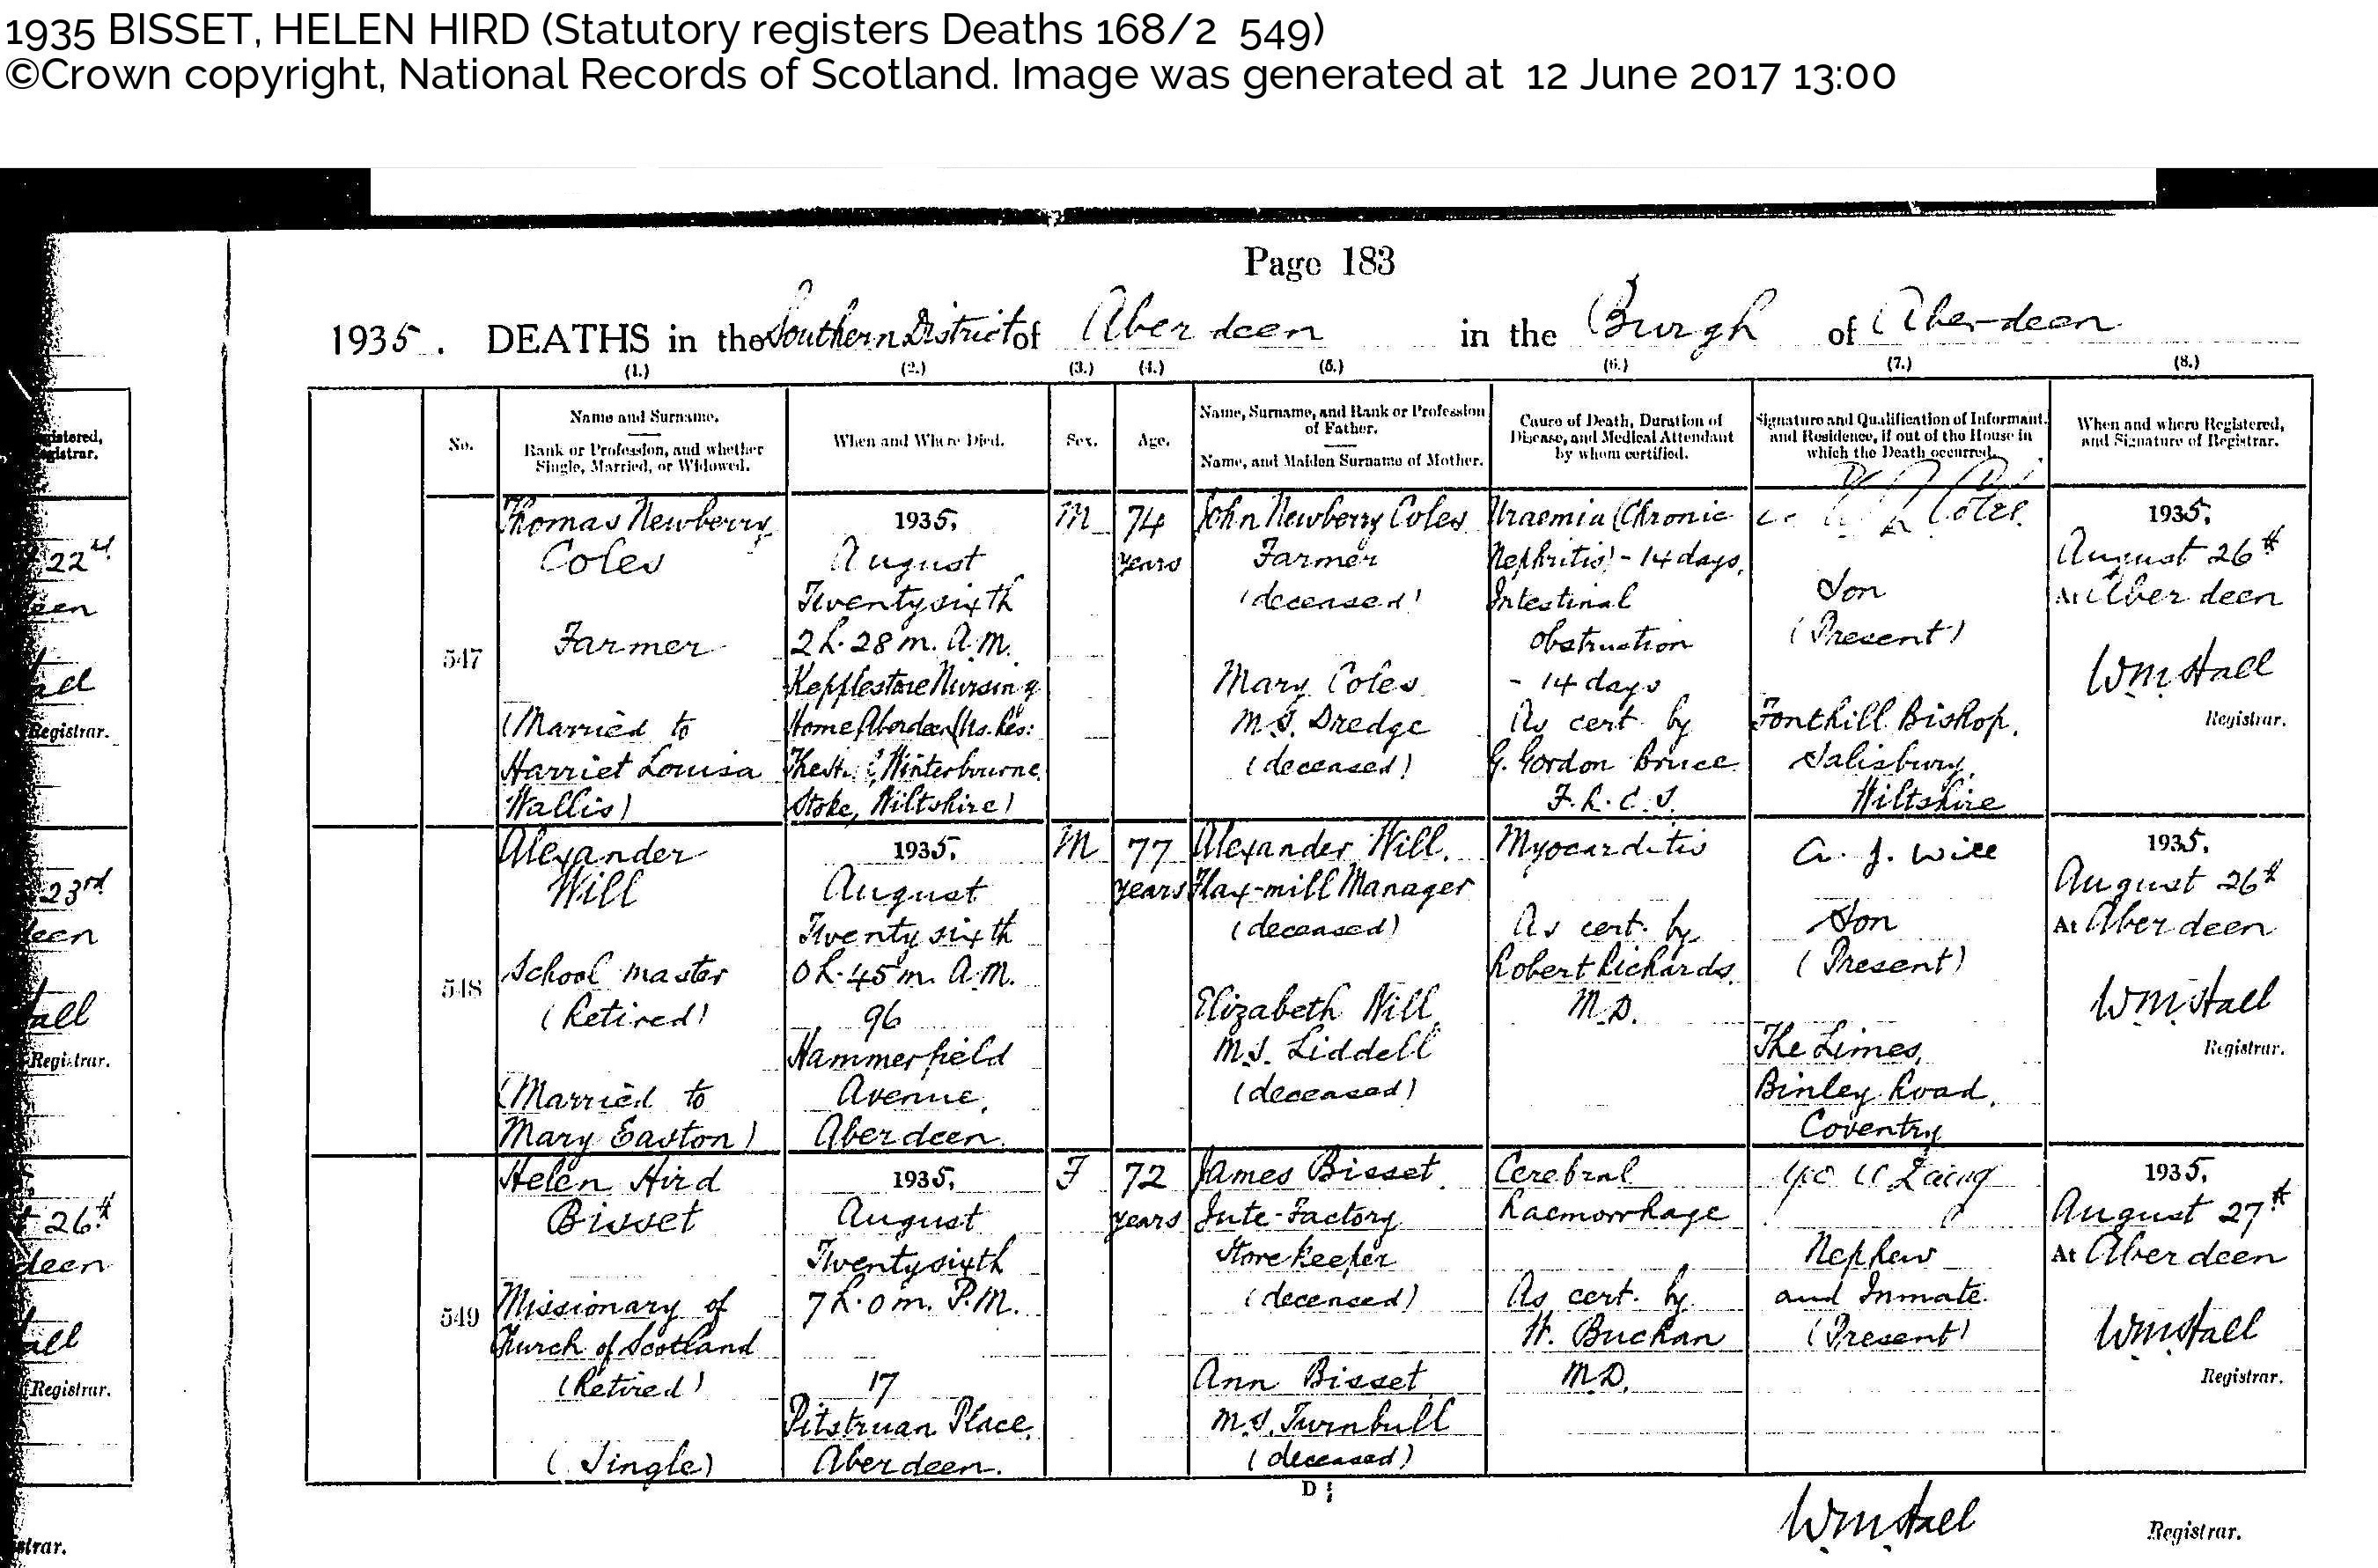 1935 BISSET, HELEN HIRD (Statutory registers Deaths 168/2 549)
©Crown copyright, National Records of Scotland. Image was generated at 12 June 2017 13:00
Page 183
1935. DEATHS in the Southern District of Aberdeen in the Burgh of Aberdeen
(1.) (2.) (3.) (4.) (5.) (6.) (7.) (8.)
No.
Name and Surname.
Rank or Profession, and whether
Single, Married, or Widowed.
When and Where Died.
Sex.
Age.
Name, Surname, and Rank or Profession
of Father.
Name, and Maiden Surname of Mother.
Cause of Death, Duration of
Disease, and Medical Attendant
by whom certified.
Signature and Qualification of Informant,
and Residence, if out of the House in
which the Death occurred.
When and where Registered,
and Signature of Registrar.
547
Thomas Newberry
Coles
Farmer
(Married to
Harriet Louisa
Wallis)
1935,
August
Twenty sixth
2 h. 28 m. A.M.
Kepplestone Nursing
Home, Aberdeen (Us. Res:
Winterbourne
Stoke, Wiltshire)
M
74
years
John Newberry Coles
Farmer
(deceased)
Mary Coles
M.S. Dredge
(deceased)
Uraemia (Chronic
Nephritis) - 14 days,
Intestinal
Obstruction
- 14 days
As cert. by
G. Gordon Bruce
F.R.C.S.
Coles.
Son
(Present)
Fonthill Bishop,
Salisbury,
Wiltshire
1935,
August 26th
At Aberdeen
Wm Stall
Registrar.
548
Alexander
Will
School master
(Retired)
(Married to
Mary Easton)
1935,
August
Twenty sixth
0 h. 45 m. A.M.
96
Hammerfield
Avenue,
Aberdeen.
M
77
years
Alexander Will,
Flax-mill Manager
(deceased)
Elizabeth Will
M.S. Liddell
(deceased)
Myocarditis
As cert. by
Robert Richards,
M.D.
A. J. Will
Son
(Present)
The Limes,
Binley Road,
Coventry
1935,
August 26th
At Aberdeen
Wm Stall
Registrar.
549
Helen Hird
Bisset
Missionary of
Church of Scotland
(Retired)
(Single)
1935,
August
Twenty sixth
7 h. 0 m. P.M.
17
Pitstruan Place,
Aberdeen.
F
72
years
James Bisset,
Jute-Factory
Storekeeper
(deceased)
Ann Bisset
M.S. Turnbull
(deceased)
Cerebral
haemorrhage
As cert. by
W. Buchan
M.D.
Laing
Nephew
and Inmate
(Present)
1935,
August 27th
At Aberdeen
Wm Stall
Registrar.
D
Wm Stall
Registrar.